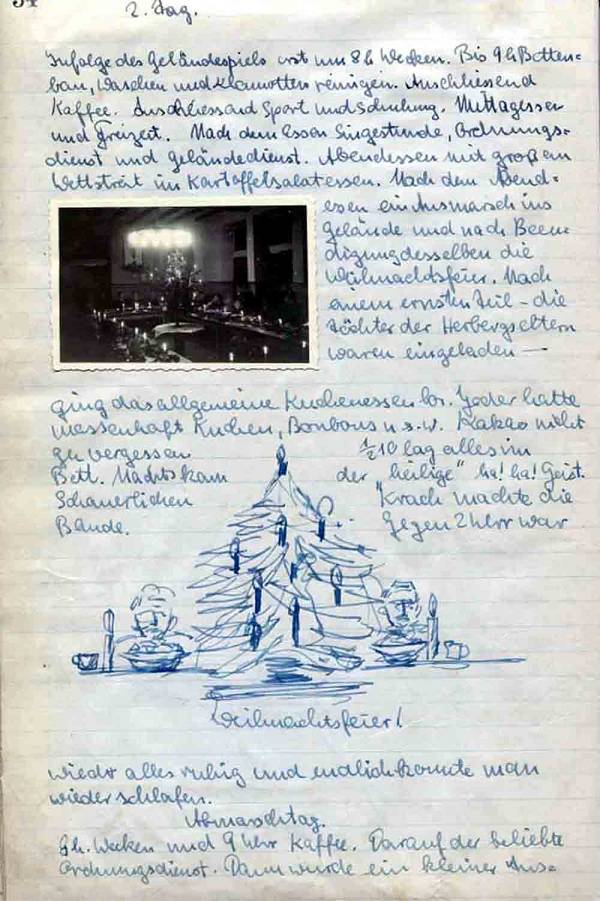 54
2. Tag.
Infolge des Geländespiels erst um 8 h Wecken. Bis 9 h Betten-
bau, Waschen und Klamotten reinigen. Anschliessend
Kaffee. Anschliessend Sport und Schulung. Mittagessen
und Freizeit. Nach dem Essen Singestunde, Ordnungs-
dienst und Geländedienst. Abendessen mit großem
Wettstreit im Kartoffelsalatessen. Nach dem Abend-
essen ein Ausmarsch ins
Gelände und nach Been-
digung desselben die
Weihnachtsfeier. Nach
einem ernsten Teil – die
Töchter der Herbergseltern
waren eingeladen —
ging das allgemeine Kuchenessen los. Jeder hatte
massenhaft Kuchen, Bonbons u.s.w. Kakao nicht
zu vergessen ½10 lag alles im
Bett. Nachts kam der "heilige" ha! ha! Geist.
Schauerlichen Krach machte die
Bande. Gegen 2 Uhr war
Weihnachtsfeier!
wieder alles ruhig und endlich konnte man
wieder schlafen.
Abmarschtag.
8 h. Wecken und 9 Uhr Kaffee. Darauf der beliebte
Ordnungsdienst. Dann wurde ein kleiner Aus-